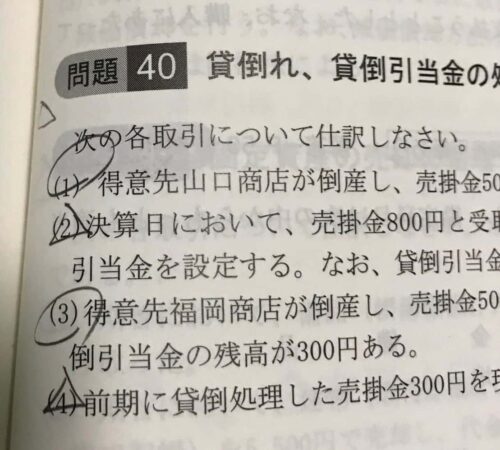 問題 40 貸倒れ、貸倒引当金の処
次の各取引について仕訳しなさい。
(1) 得意先山口商店が倒産し、売掛金50
(2) 決算日において、売掛金800円と受取
引当金を設定する。なお、貸倒引当金
(3) 得意先福岡商店が倒産し、売掛金50
倒引当金の残高が300円ある。
(4) 前期に貸倒処理した売掛金300円を現